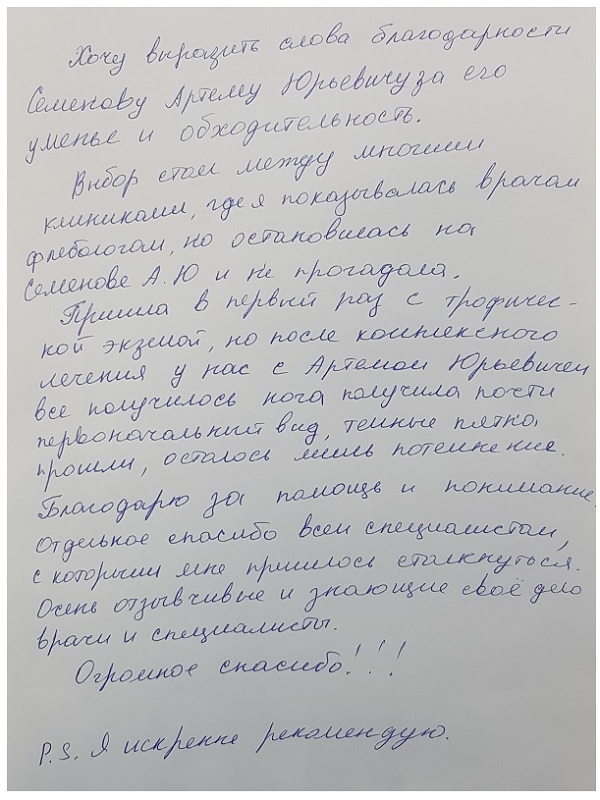 Хочу выразить слова благодарности
Семенову Артему Юрьевичу за его
уменье и обходительность.
Выбор стал между многими
клиниками, где я показывалась врачам
флебологам, но остановилась на
Семенове А.Ю и не прогадала.
Пришла в первый раз с трофичес-
кой экземой, но после комплексного
лечения у нас с Артемом Юрьевичем
все получилось нога получила почти
первоначальный вид, темные пятна
прошли, осталось лишь потемнение.
Благодарю за помощь и понимание.
Отдельное спасибо всем специалистам,
с которыми мне пришлось столкнуться.
Очень отзывчивые и знающие своё дело
врачи и специалисты.
Огромное спасибо!!!
P.S. Я искренне рекомендую.